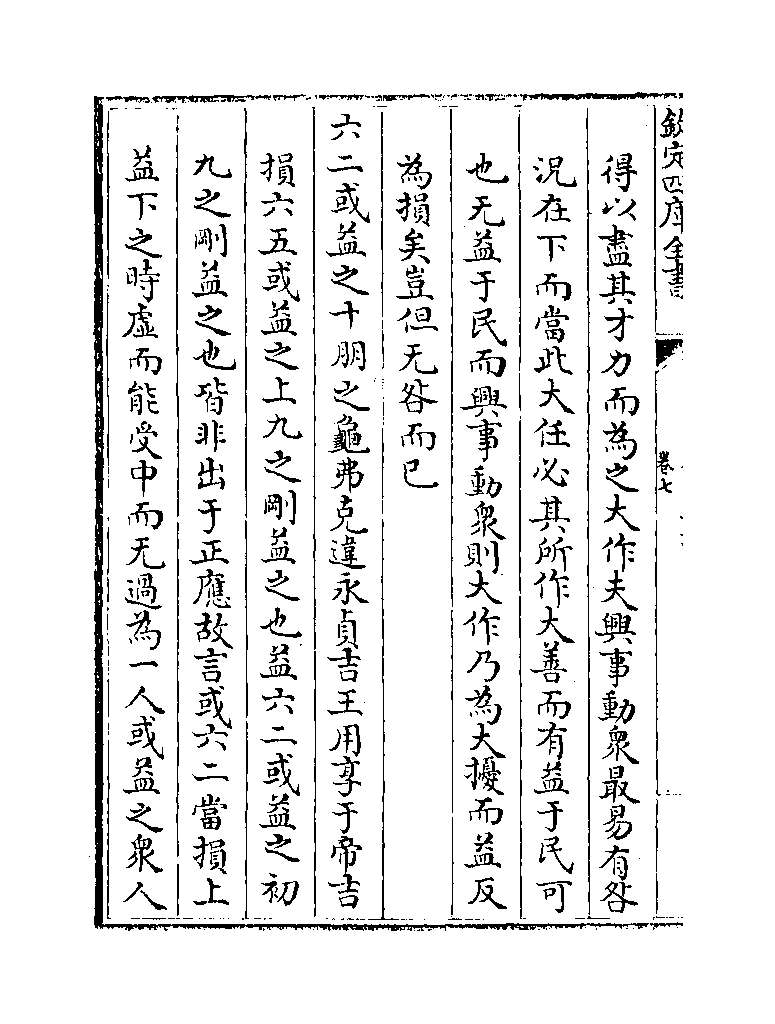 欽定四庫全書
卷七
得以盡其才力而為之大作夫興事動衆最易有咎
况在下而當此大任必其所作大善而有益于民可
也无益于民而興事動衆則大作乃為大擾而益反
為損矣豈但无咎而已
六二或益之十朋之龜弗克違永貞吉王用享于帝吉
損六五或益之上九之剛益之也益六二或益之初
九之剛益之也皆非出于正應故言或六二當損上
益下之時虛而能受中而无過為一人或益之衆人